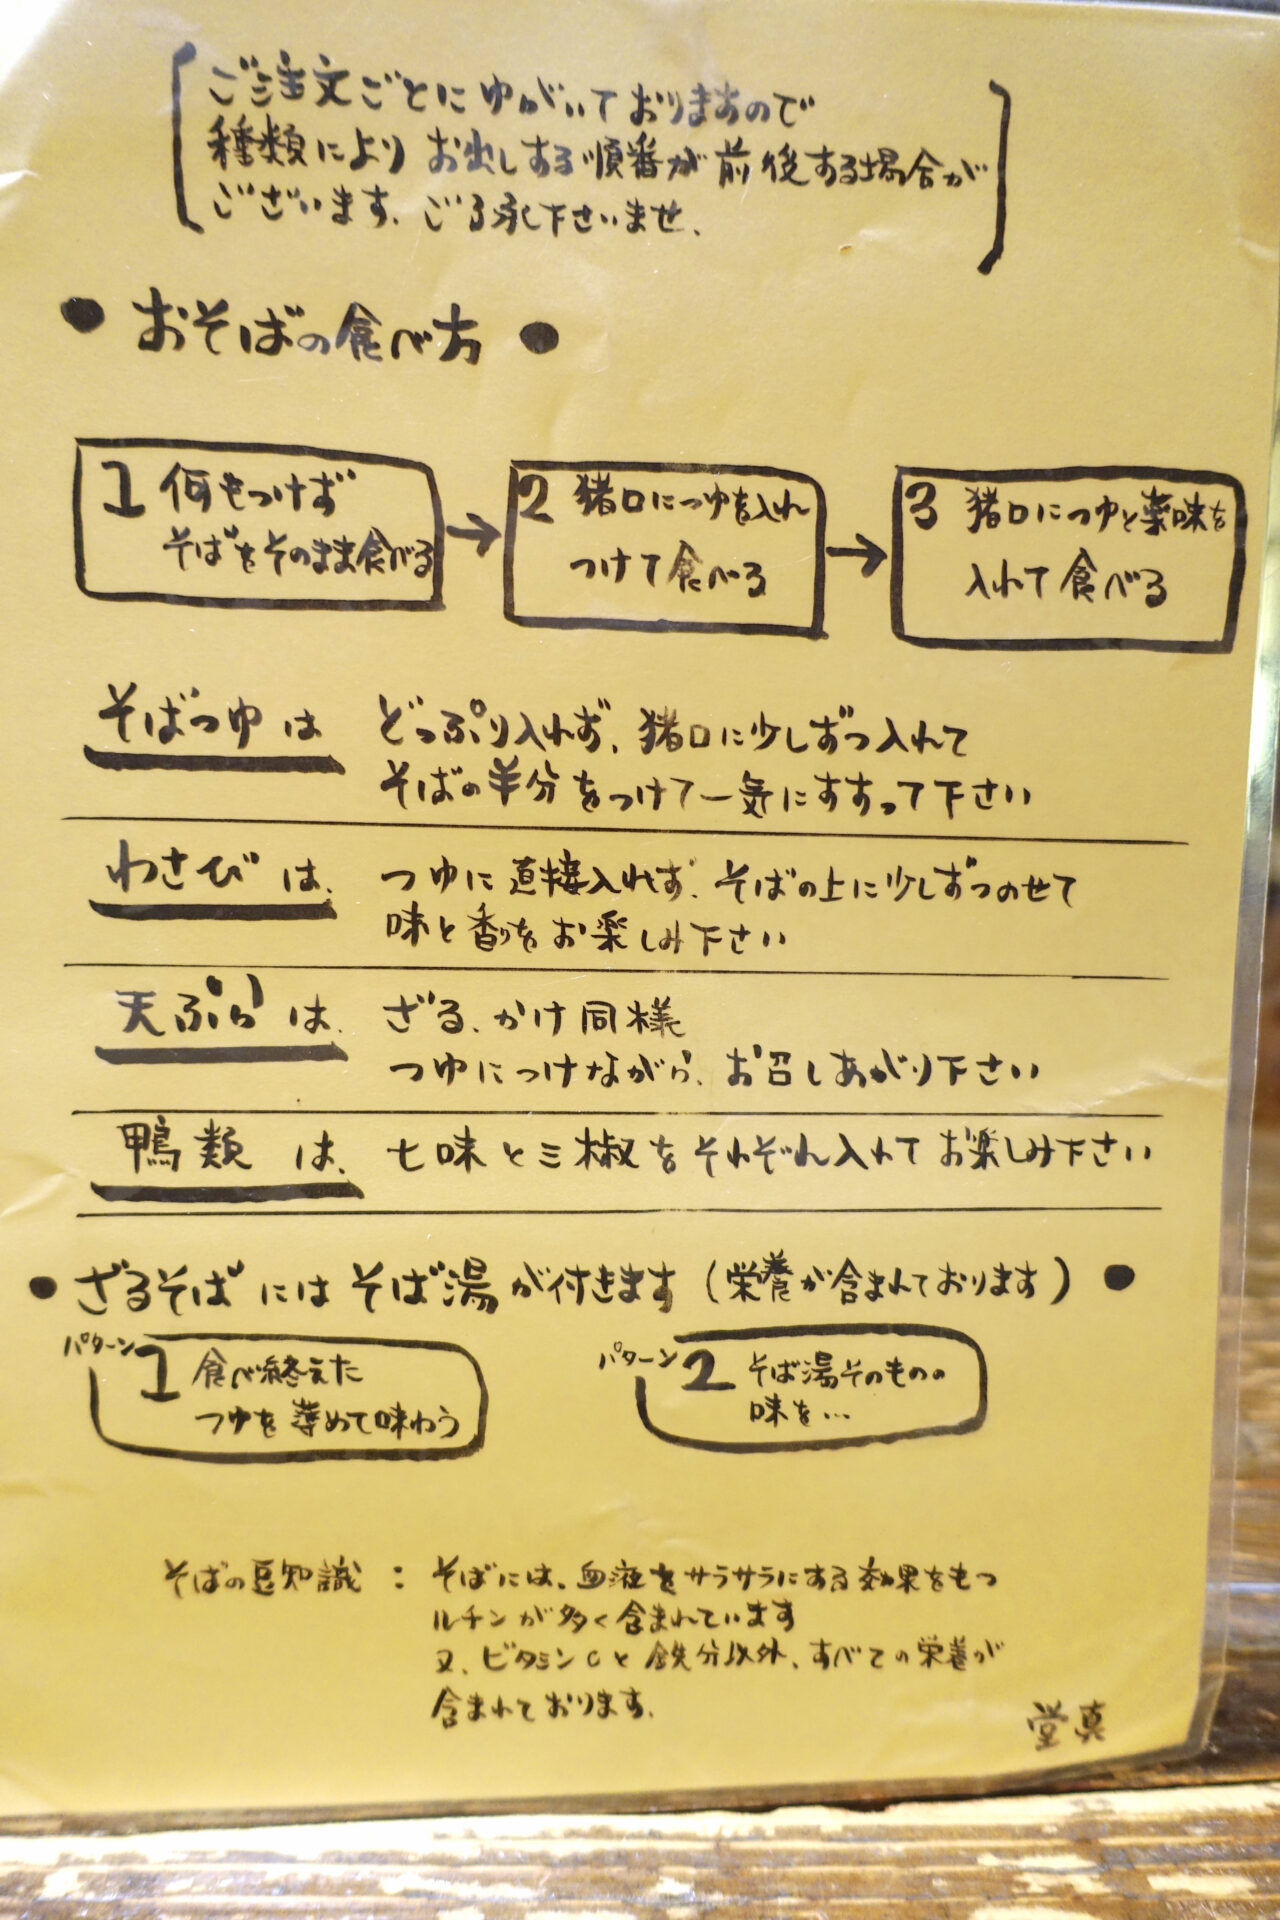 ご注文ごとにゆがいておりますので
種類により お出しする順番が前後する場合が
ございます、ご了承下さいませ、
● おそばの食べ方 ●
1 何もつけず
そばをそのまま食べる
→
2 猪口につゆを入れ
つけて食べる
→
3 猪口につゆと薬味を
入れて食べる
そばつゆは どっぷり入れず、猪口に少しずつ入れて
そばの半分をつけて一気にすすって下さい
わさびは、 つゆに直接入れず、そばの上に少しずつのせて
味と香りをお楽しみ下さい
天ぷらは、 ざる、かけ同様
つゆにつけながら、お召しあがり下さい
鴨類は、 七味と三椒をそれぞれ入れてお楽しみ下さい
● ざるそばにはそば湯が付きます (栄養が含まれております) ●
パターン1 食べ終えた
つゆを薄めて味わう
パターン2 そば湯そのものの
味を…
そばの豆知識 : そばには、血液をサラサラにする効果をもつ
ルチンが多く含まれています
又、ビタミンCと鉄分以外、すべての栄養が
含まれております、
堂真